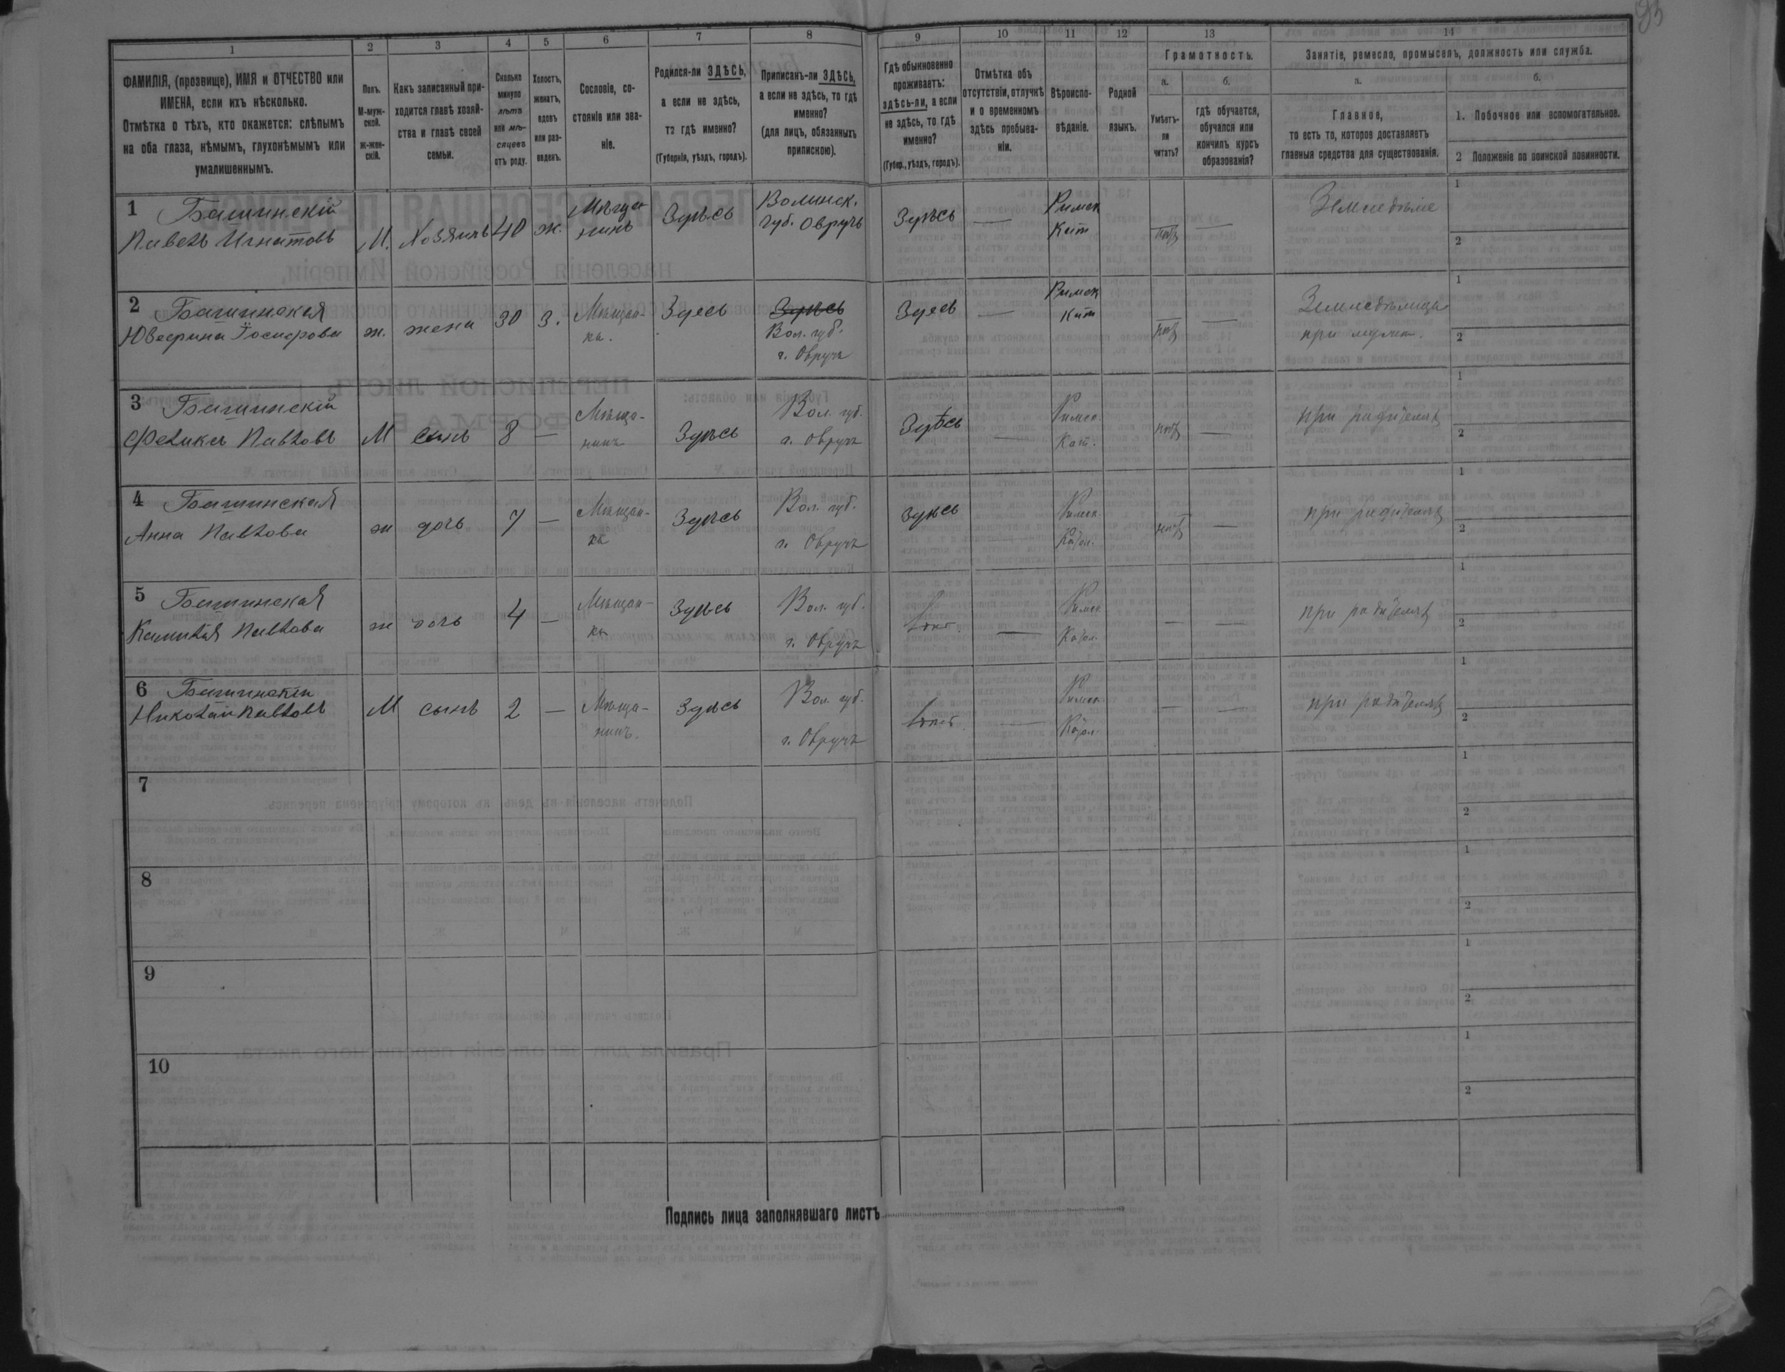 93
1 2 3 4 5 6 7 8 9 10 11 12 13 14
ФАМИЛІЯ, (прозвище), ИМЯ и ОТЧЕСТВО или ИМЕНА, если ихъ нѣсколько.
Отмѣтка о тѣхъ, кто окажется: слѣпымъ на оба глаза, нѣмымъ, глухонѣмымъ или умалишеннымъ.
Полъ. М-мужской. Ж-женскій.
Какъ записанный приходится главѣ хозяйства и главѣ своей семьи.
Сколько минуло лѣтъ или мѣсяцевъ отъ роду.
Холостъ, женатъ, вдовъ или разведенъ.
Сословіе, состояніе или званіе.
Родился-ли ЗДѢСЬ, а если не здѣсь, то гдѣ именно?
(Губернія, уѣздъ, городъ).
Приписанъ-ли ЗДѢСЬ, а если не здѣсь, то гдѣ именно?
(для лицъ, обязанныхъ припискою).
Гдѣ обыкновенно проживаетъ: здѣсь-ли, а если не здѣсь, то гдѣ именно?
(Губер., уѣздъ, городъ).
Отмѣтка объ отсутствіи, отлучкѣ и о временномъ здѣсь пребываніи.
Вѣроисповѣданіе.
Родной языкъ.
Грамотность.
а. Умѣетъ-ли читать?
б. гдѣ обучается, обучался или кончилъ курсъ образованія?
Занятіе, ремесло, промыселъ, должность или служба.
а. Главное,
то есть то, которое доставляетъ главныя средства для существованія.
б.
1. Побочное или вспомогательное.
2 Положеніе по воинской повинности.
1 Башинскій Павелъ Игнатовъ М. Хозяинъ 40 ж. Мѣщанинъ Здѣсь Волинск. губ. Овручъ Здѣсь — Римск Кат нѣтъ — Земледѣліе 1 2
2 Башинская Юзефина Іосифова ж. жена 30 З. Мѣщанка. Здесь Здѣсь Вол. губ. г. Овручъ Здесь — Римск Кат нѣтъ — Земледѣлица при мужѣ. 1 2
3 Башинскій Феликсъ Павловъ М сынъ 8 — Мѣщанинъ Здѣсь Вол. губ. г. Овручъ Здѣсь — Римск Кат. нѣтъ — при родителях 1 2
4 Башинская Анна Павлова ж дочь 7 — Мѣщанка Здѣсь Вол. губ. г. Овручъ Здѣсь — Римск Катол. нѣтъ — при родителях 1 2
5 Башинская Камилія Павлова ж дочь 4 — Мѣщанка Здѣсь Вол. губ. г. Овручъ — Римск Катол. — — при родителях 1 2
6 Башинскій Николай Павловъ М сынъ 2 — Мѣщанинъ. Здѣсь Вол. губ. г. Овручъ — Римск Катол. — — при родителях 1 2
7 1 2
8 1 2
9 1 2
10 1 2
Подпись лица заполнявшаго листъ